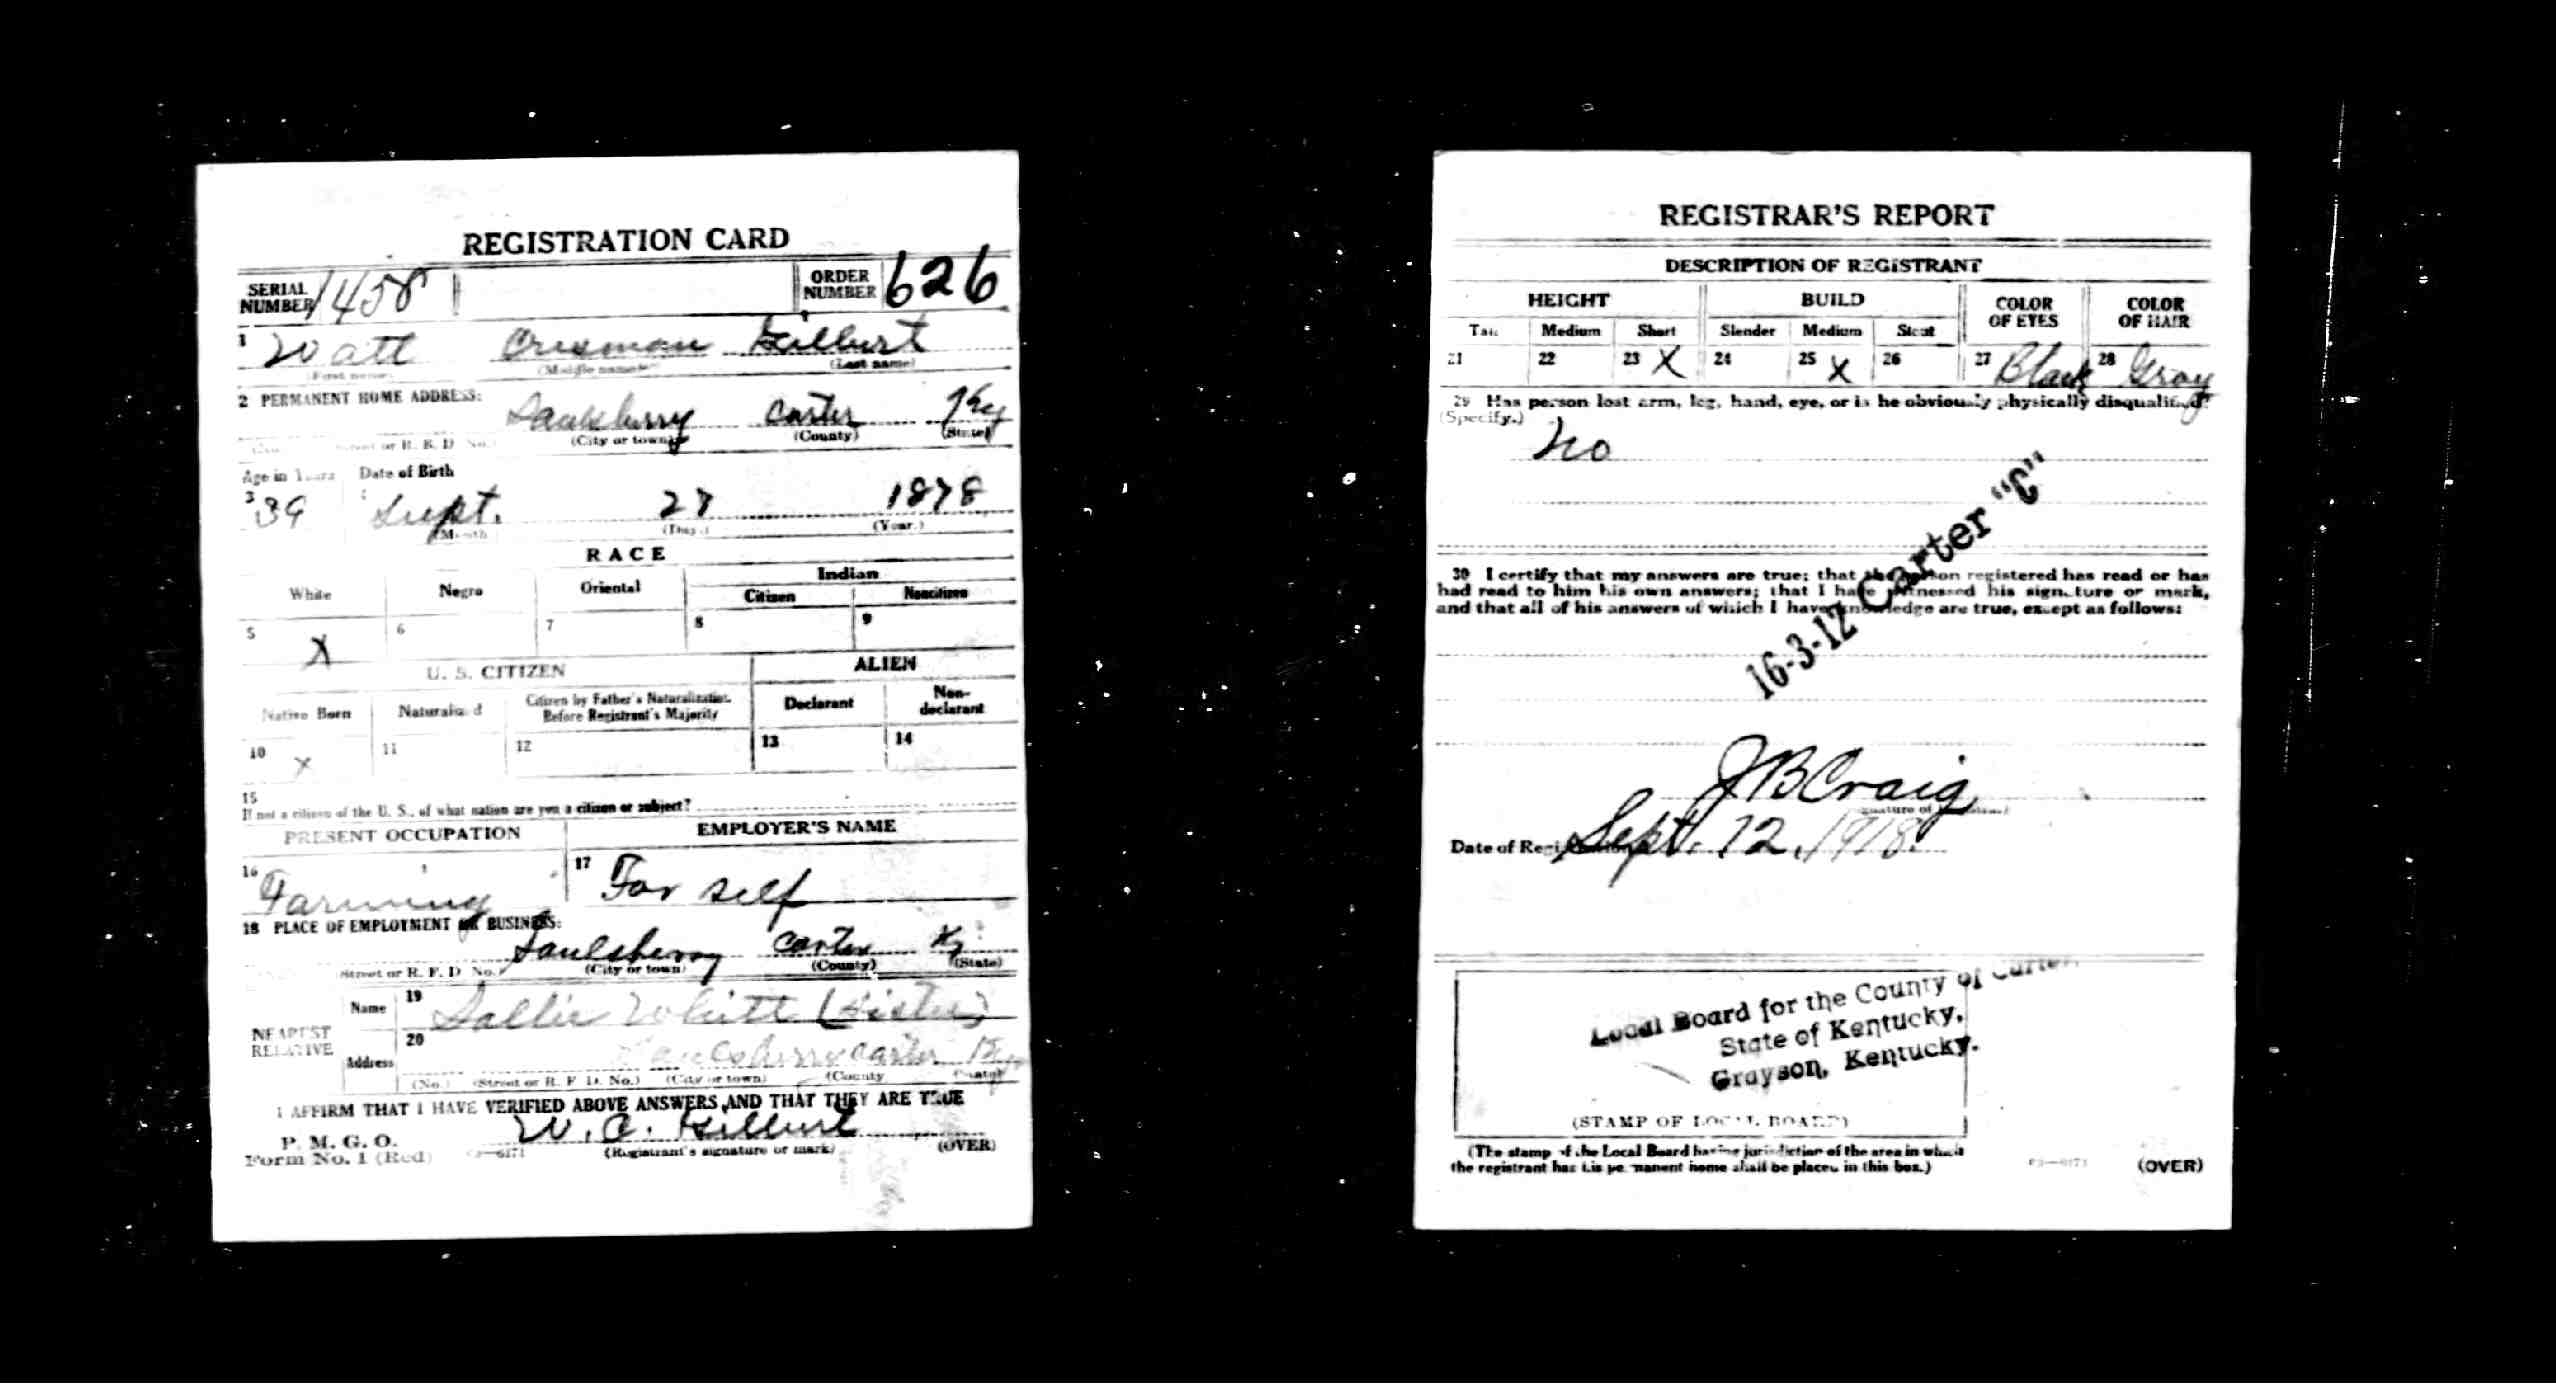 REGISTRATION CARD
SERIAL NUMBER 1458 ORDER NUMBER 626
1 Watt Crisman Gilbert
(First name) (Middle name) (Last name)
2 PERMANENT HOME ADDRESS:
Saulsberry Carter Ky
(No.) (Street or R. F. D. No.) (City or town) (County) (State)
Age in Years Date of Birth
3 39 4 Sept. 27 1878
(Month) (Day.) (Year.)
RACE
White Negro Oriental Indian
Citizen Noncitizen
5 X 6 7 8 9
U. S. CITIZEN ALIEN
Native Born Naturalized Citizen by Father's Naturalization Before Registrant's Majority Declarant Non-declarant
10 X 11 12 13 14
15
If not a citizen of the U. S., of what nation are you a citizen or subject?
PRESENT OCCUPATION EMPLOYER'S NAME
16 Farming 17 For self
18 PLACE OF EMPLOYMENT OR BUSINESS:
Saulsberry Carter Ky
(Street or R. F. D. No.) (City or town) (County) (State)
NEAREST RELATIVE Name 19 Sallie Whitt (Sister)
Address 20 Saulsberry Carter Ky
(No.) (Street or R. F. D. No.) (City or town) (County) (State)
I AFFIRM THAT I HAVE VERIFIED ABOVE ANSWERS AND THAT THEY ARE TRUE
P. M. G. O.
Form No. 1 (Red) W. C. Gilbert
(Registrant's signature or mark) (OVER)
REGISTRAR'S REPORT
DESCRIPTION OF REGISTRANT
HEIGHT BUILD COLOR OF EYES COLOR OF HAIR
Tall Medium Short Slender Medium Stout
21 22 23 X 24 25 X 26 27 Black 28 Gray
29 Has person lost arm, leg, hand, eye, or is he obviously physically disqualified?
(Specify.) No
30 I certify that my answers are true; that the person registered has read or has
had read to him his own answers; that I have witnessed his signature or mark,
and that all of his answers of which I have knowledge are true, except as follows:
16-3-12 Carter "C"
J B Craig
(Signature of Registrar)
Date of Registration Sept. 12, 1918.
Local Board for the County of Carter,
State of Kentucky,
Grayson, Kentucky.
(STAMP OF LOCAL BOARD)
(The stamp of the Local Board having jurisdiction of the area in which
the registrant has his permanent home shall be placed in this box.)
(OVER)